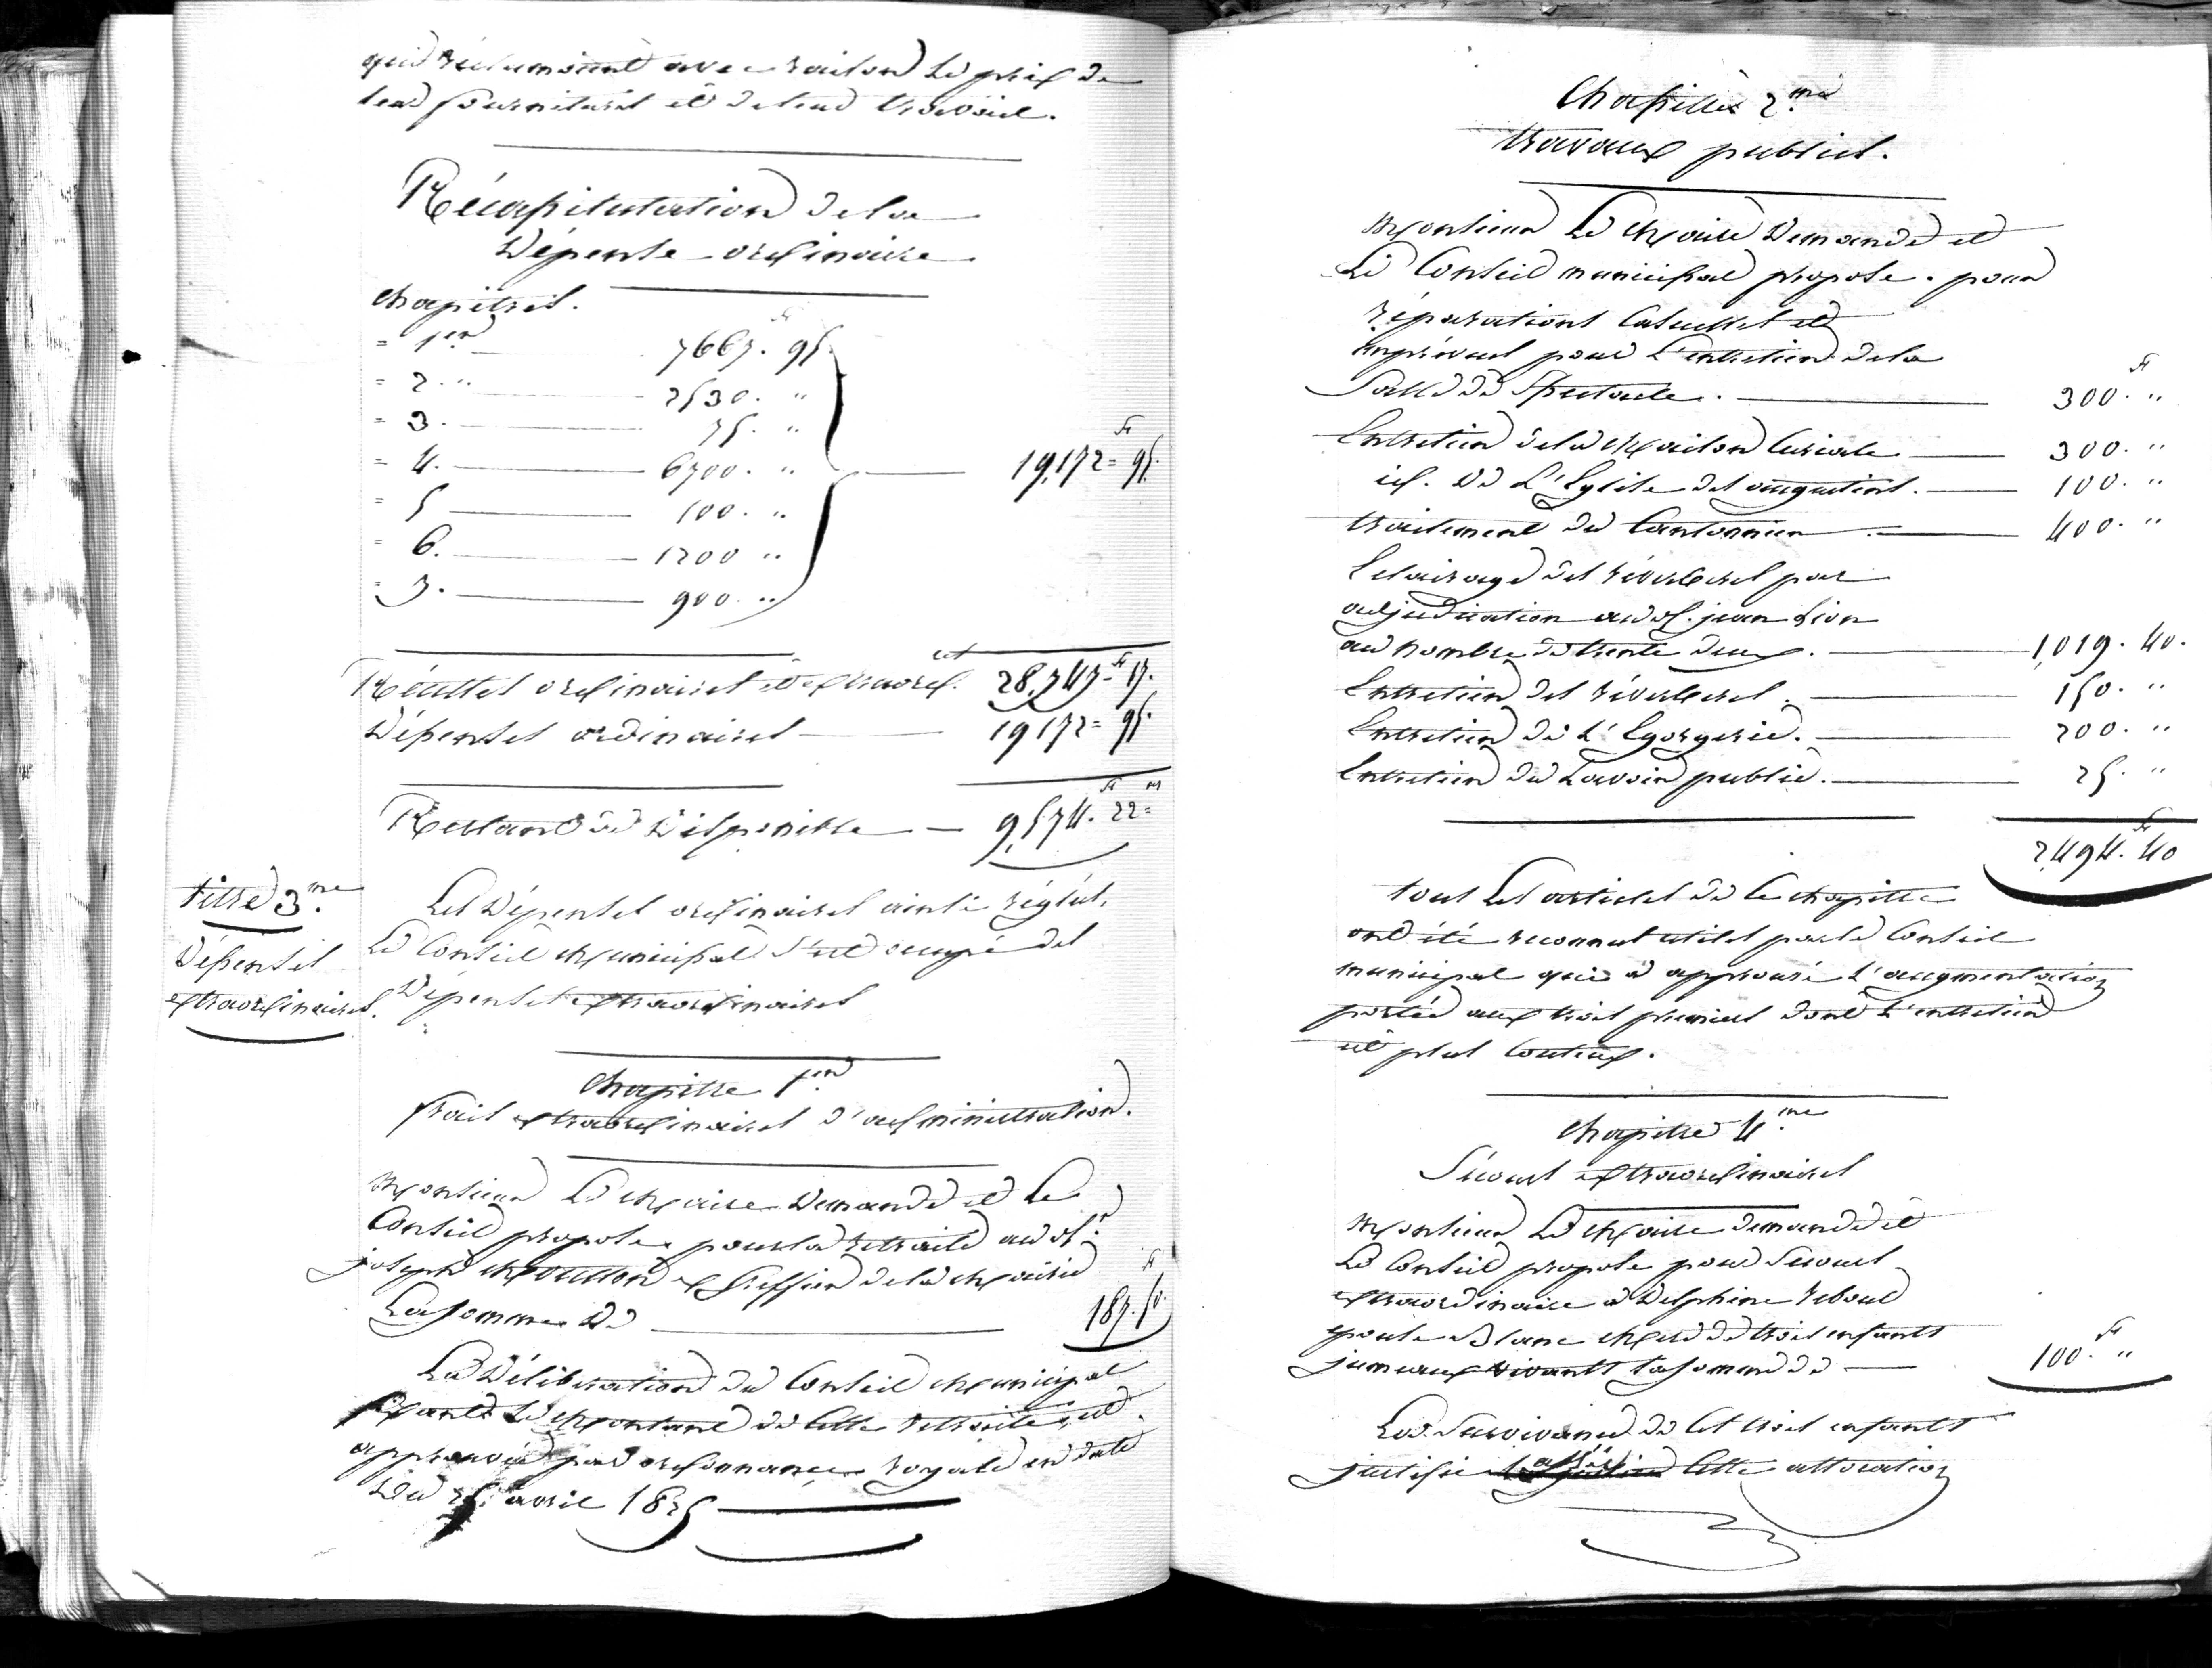 qui réclamoient avec raison le prix de
leur fournitures et de leur travail.
Récapitulation de la
Dépense ordinaire
chapitres.
= 1er 7667. 95.
= 2. " 2530. "
= 3. 75. "
= 4. 6700. "
= 5 100. "
= 6. 1200 "
= 7. 900. "
19,172 = 95. fr
Recettes ordinaires et extraord. 28,747 = fr 17.
Dépenses ordinaires 19172 = 95.
Restant de Disponible 9,574. fr 22 = cs
titre 3.me
Dépenses
extraordinaires.
Les Dépenses ordinaires ainsi réglées,
Le Conseil Municipal s'est occupé des
Dépenses extraordinaires
Chapitre 1.er
frais extraordinaires d'administration.
Monsieur Le Maire Demande et Le
Conseil propose pour la retraite au Sr.
joseph Moutton ex Greffier de la Mairie
La somme De 187. fr 50.
La Délibération du Conseil Municipal
fixant Le Montant de Cette retraite, est
approuvée par ordonnance royale en date
Du 25. avril 1825
Chapitre 2.me
travaux publics.
Monsieur Le Maire Demande et
Le Conseil municipal propose. pour
réparations Casuelles et
imprévues pour L'entretien de la
Salle de Spectacle. 300. fr "
Entretien de la Maison Curiale 300. "
id. De L'Eglise des augustins. 100. "
traitement du Cantonnier 400. "
Eclairage des réverberes par
adjudication au Sr. jean Lion
au nombre de trente deux. 1,019. 40.
Entretien des réverberes. 150. "
Entretien de L'Egorgerie. 200. "
Entretien du Lavoir public. 25. "
2,494. fr 40
tous Les articles de Ce chapitre
ont été reconnus utiles par le Conseil
municipal qui a approuvé L'augmentation
portée aux trois premiers dont L'entretien
est plus Couteux.
Chapitre 4.me
Secours extraordinaires
Monsieur Le Maire demande et
Le Conseil propose pour Secours
extraordinaire a Delphine reboul
epouse Blanc Mere de trois enfants
jumeaux vivants la somme de 100. fr "
La Survivance de Ces trois enfants
justifie assés Cette allocation